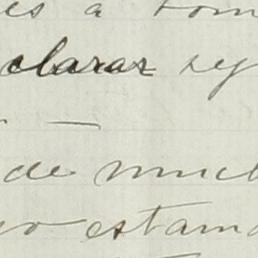 es a tom
clarar ey
de much
yo estama